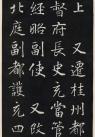 又遷桂州都
督府長史充當管
經略副使又改
北庭副都護充四